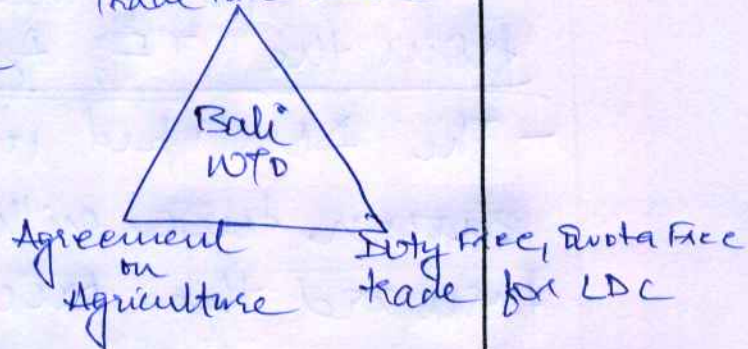 Trade
Bali
WTO
Agreement
on
Agriculture
Duty Free, Quota Free
trade for LDC